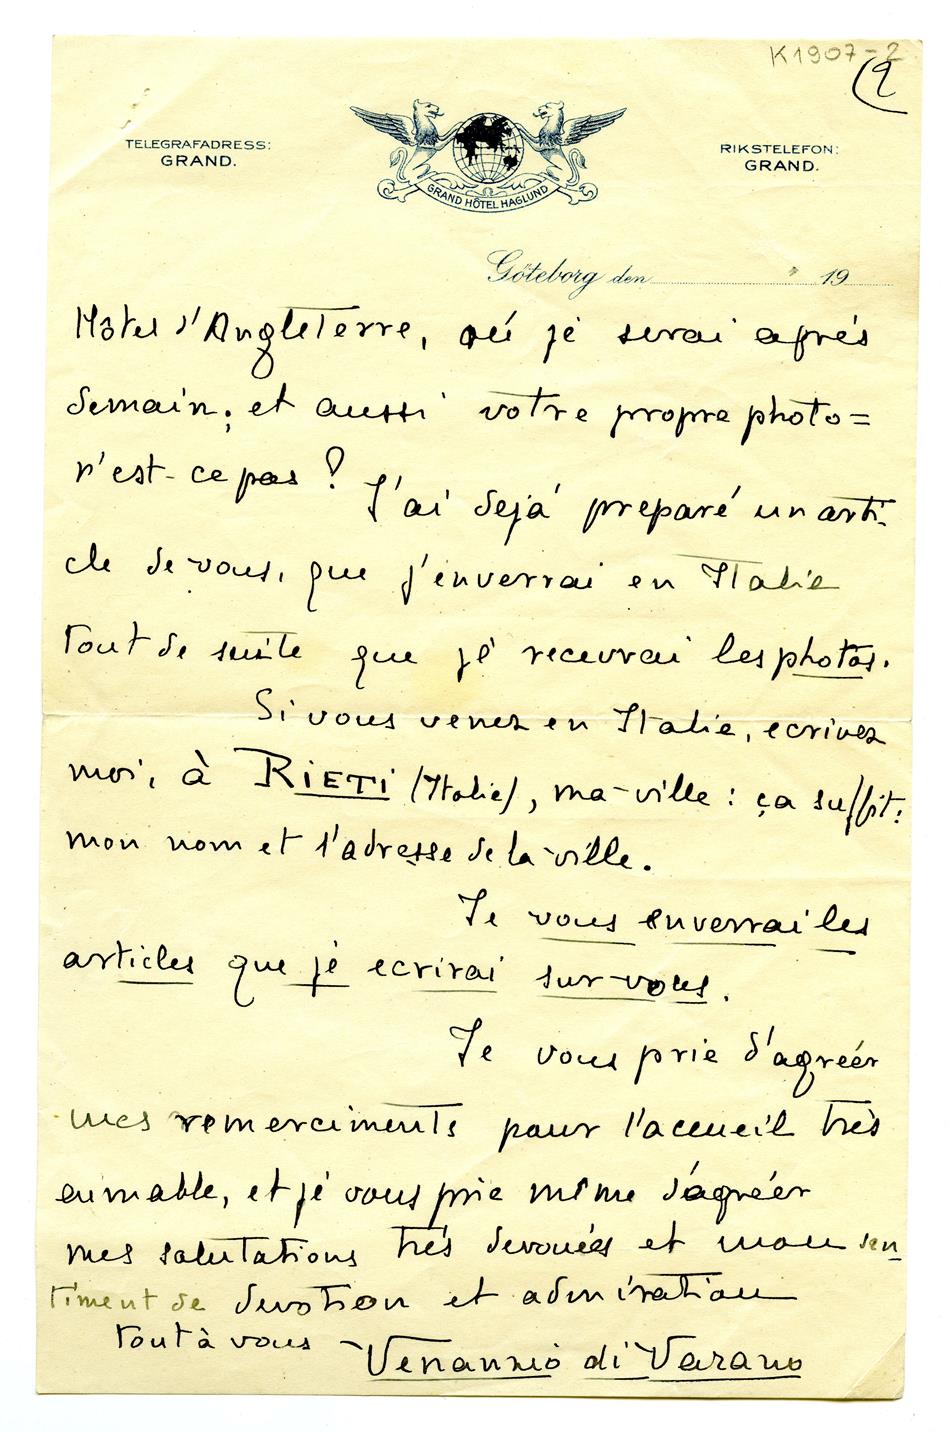 K1907-2
(2
TELEGRAFADRESS:
GRAND.
GRAND HÔTEL HAGLUND
RIKSTELEFON:
GRAND.
Göteborg den 19
Hôtel d'Angleterre, où je serai aprés
demain; et aussi votre propre photo=
n'est-ce pas?
J'ai dejá preparé un arti-
cle de vous, que j'enverrai en Italie
tout de suite que je recevrai les photos.
Si vous venez en Italie, ecrivez
moi, à RIETI (Italie), ma ville: ça suffit:
mon nom et l'adresse de la ville.
Je vous enverrai les
articles que je ecrirai sur vous.
Je vous prie d'agréer
mes remerciments pour l'accueil très
aimable, et je vous prie même d'agréer
mes salutations trés devouées et mon sen
timent de devotion et admiration
tout à vous
Venannio di Varano